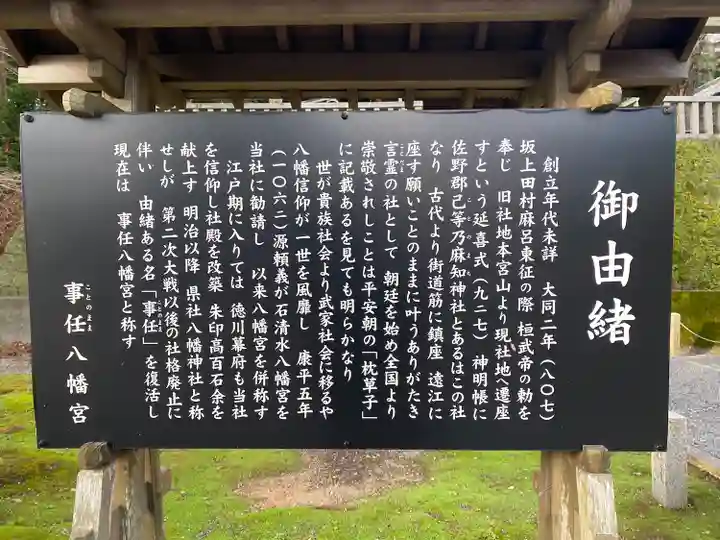 御由緒
創立年代未詳 大同二年（八〇七）
坂上田村麻呂東征の際 桓武帝の勅を
奉じ 旧社地本宮山より現社地へ遷座
すという延喜式（九二七） 神明帳に
佐野郡己等乃麻知神社とあるはこの社
なり 古代より街道筋に鎮座 遠江に
座す願いことのままに叶うありがたき
言霊の社として 朝廷を始め全国より
崇敬されしことは平安朝の「枕草子」
に記載あるを見ても明らかなり
世が貴族社会より武家社会に移るや
八幡信仰が一世を風靡し 康平五年
（一〇六二）源頼義が石清水八幡宮を
当社に勧請し 以来八幡宮を併称す
江戸期に入りては 徳川幕府も当社
を信仰し社殿を改築 朱印高百石余を
献上す 明治以降 県社八幡神社と称
せしが 第二次大戦以後の社格廃止に
伴い 由緒ある名「事任」を復活し
現在は 事任八幡宮と称す
事任八幡宮
ことのまま